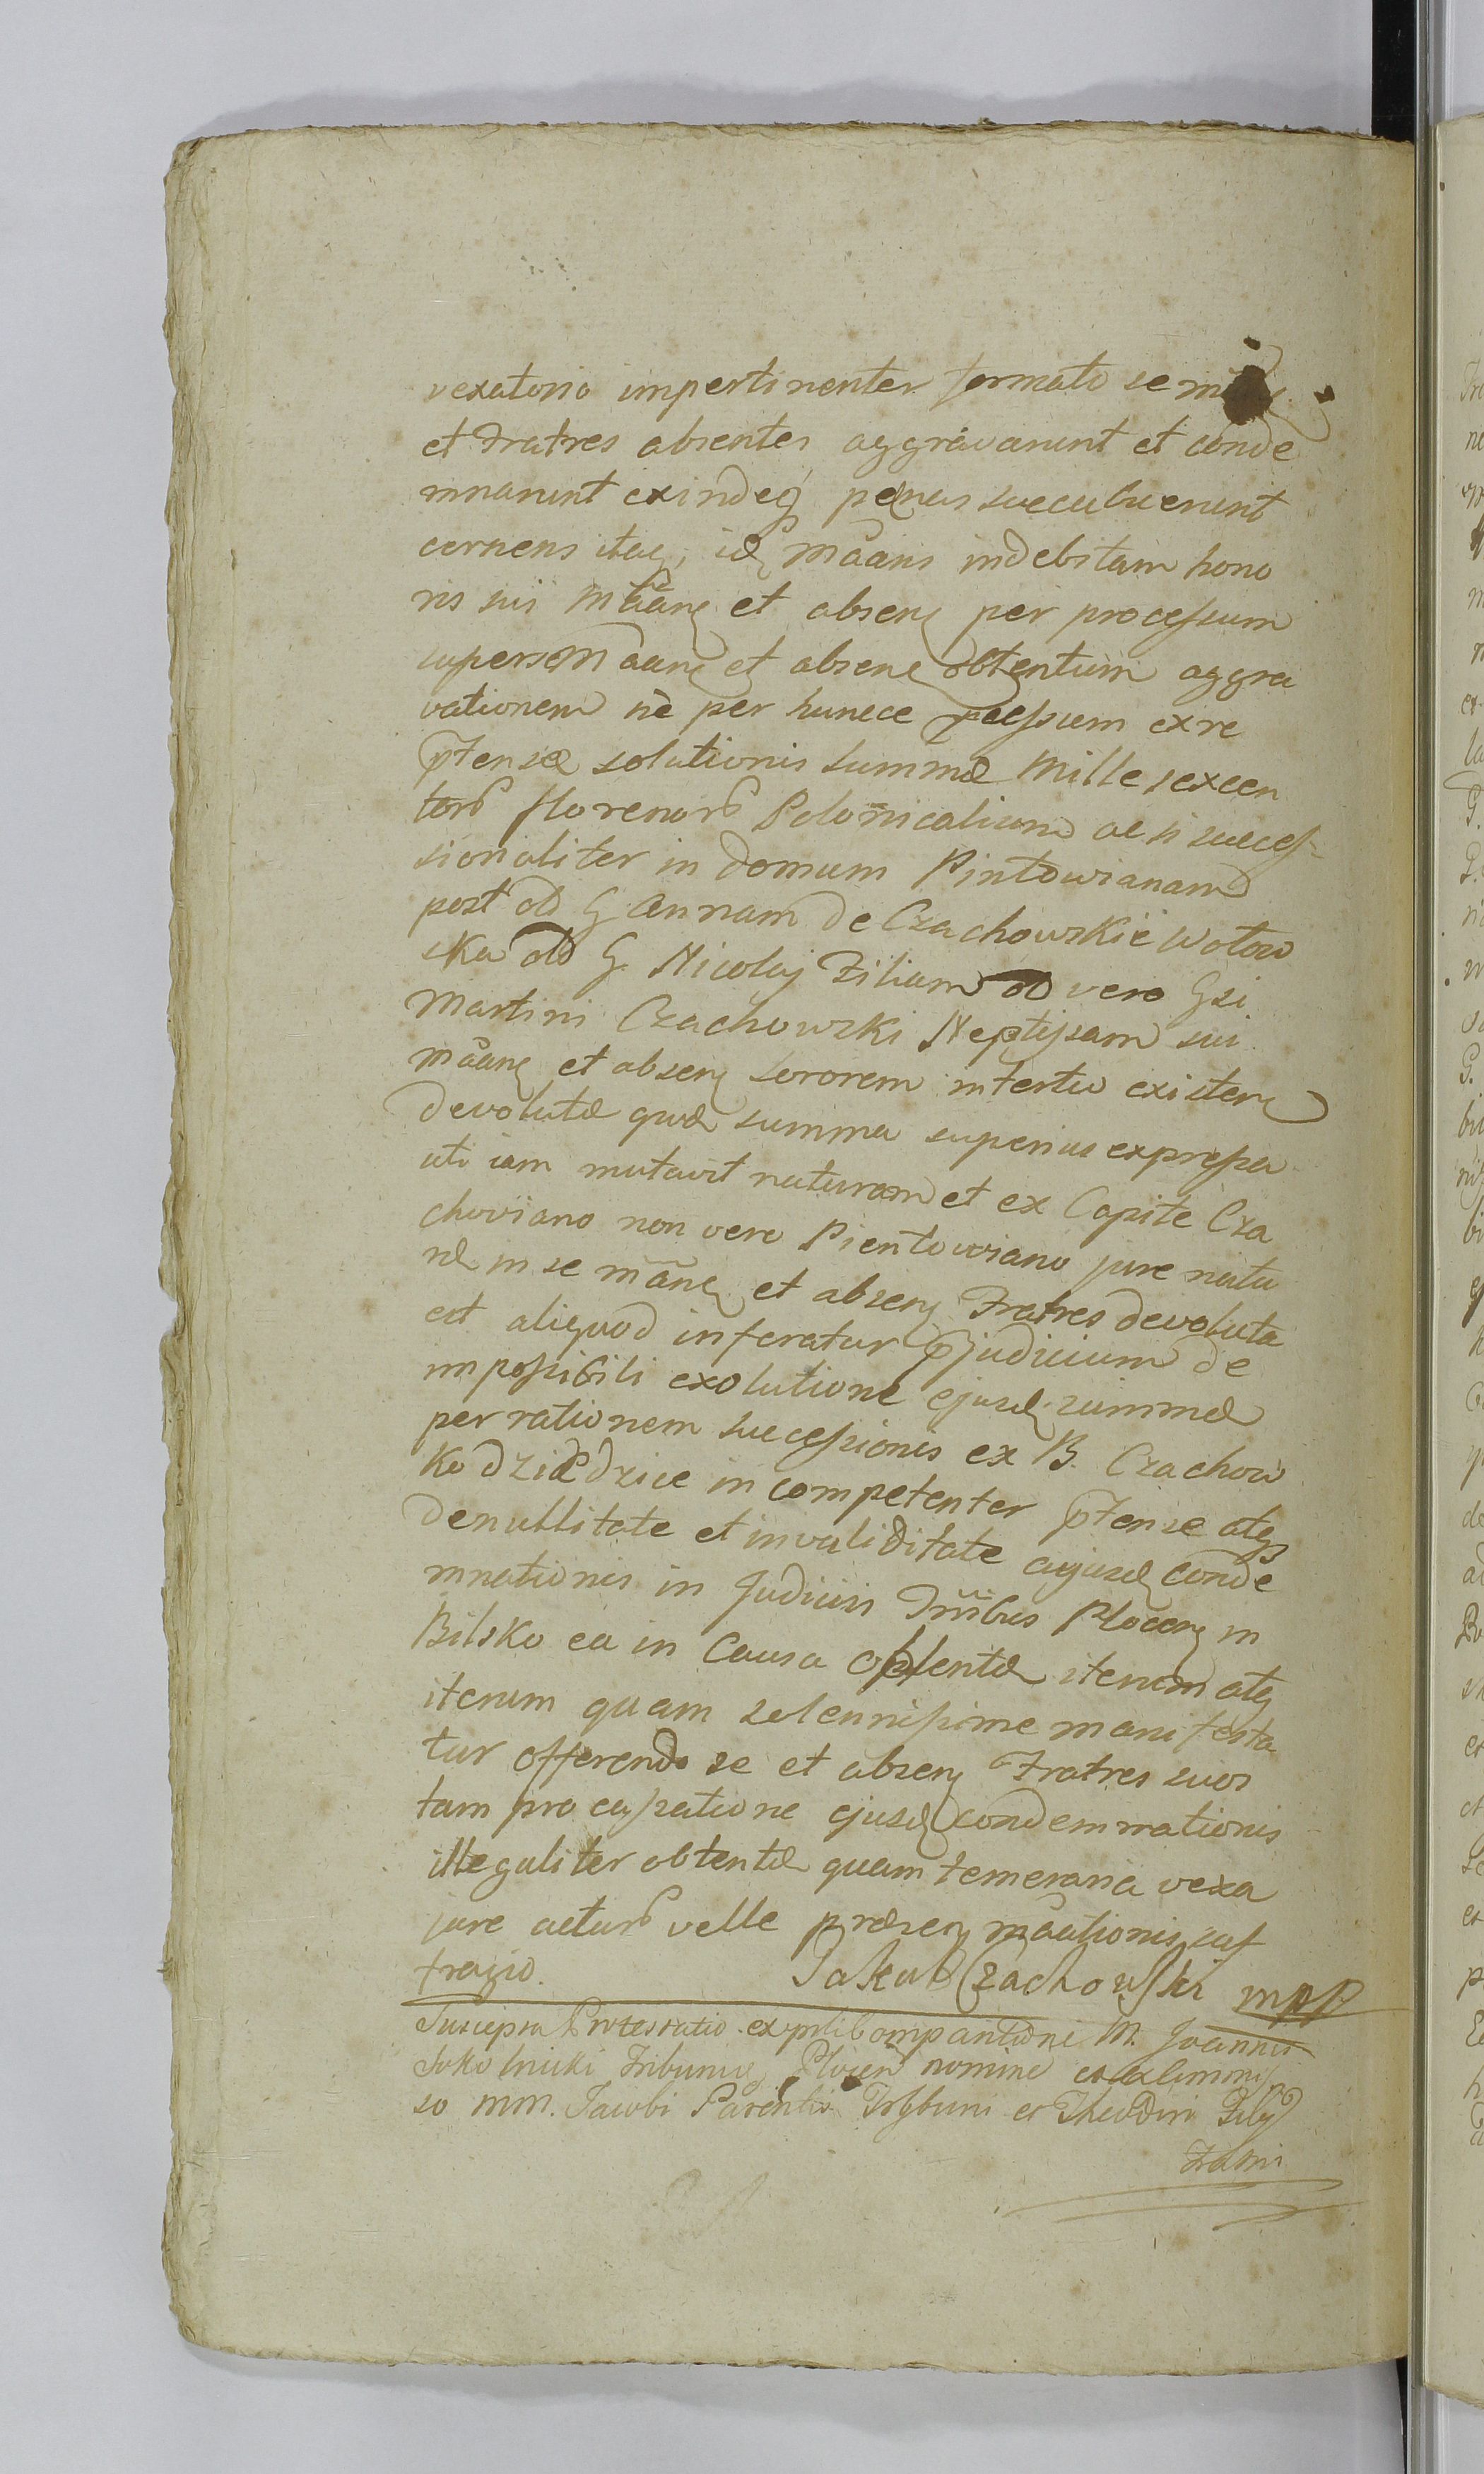 vexatorio impertinenter formato se
et Fratres absentes aggravarunt et conde
mnarunt exindeq penas succubuerunt
cernens itaq, idq Mãans indebitam hono
ris sui Mãanq et absenq per processum
superse Mãanq et absenq obtentum aggra
vationem nè per hunece processum ex re
ptensæ solutionis summæ Mille sexcen
torũ florenorũ Polonicalium ac si succes-
sionaliter in domum Pintowianam
post olo G Annam de Czachowskie Wołow
ska olo G. Nicolaj Filiam olo vero Gsi
Martini Czachowski Neptijsam sui
mãanq et absenq sororem intertio existenq
devolutæ quæ summa superius expressa
uti iam mutavit naturam et ex Capite Cza
choviano non vero Pientowiano jure natu
ræ in se mãnq et absenq Fratres devoluta
est aliquod inferatur pjudicium de
impossibili exolutione ejusdq summæ
per rationem successionis ex B. Czachow
Ko dziedzice incompetenter ptensæ atq
de nullitate et invaliditate ejusdq conde
mnationis in Judiciis Trribus Plocenq in
Bilsko ea in Causa obtentæ iterum atq
iterum quam solennissime manifesta
tur offerendo se et absenq Fratres suos
tam pro cassatione ejusdq condemnationis
illegaliter obtentæ quam temeraria vexa
jure acturũ velle præsenq mãationis suf
fragio. Jakub Czachowski mpp
Suscepta Protestatio ex M. Joannis
Sokolnicki Tribunig Plocen nomine et
so mm. Jacobi Parentis Tribuni et Theodori Filij
Fratris